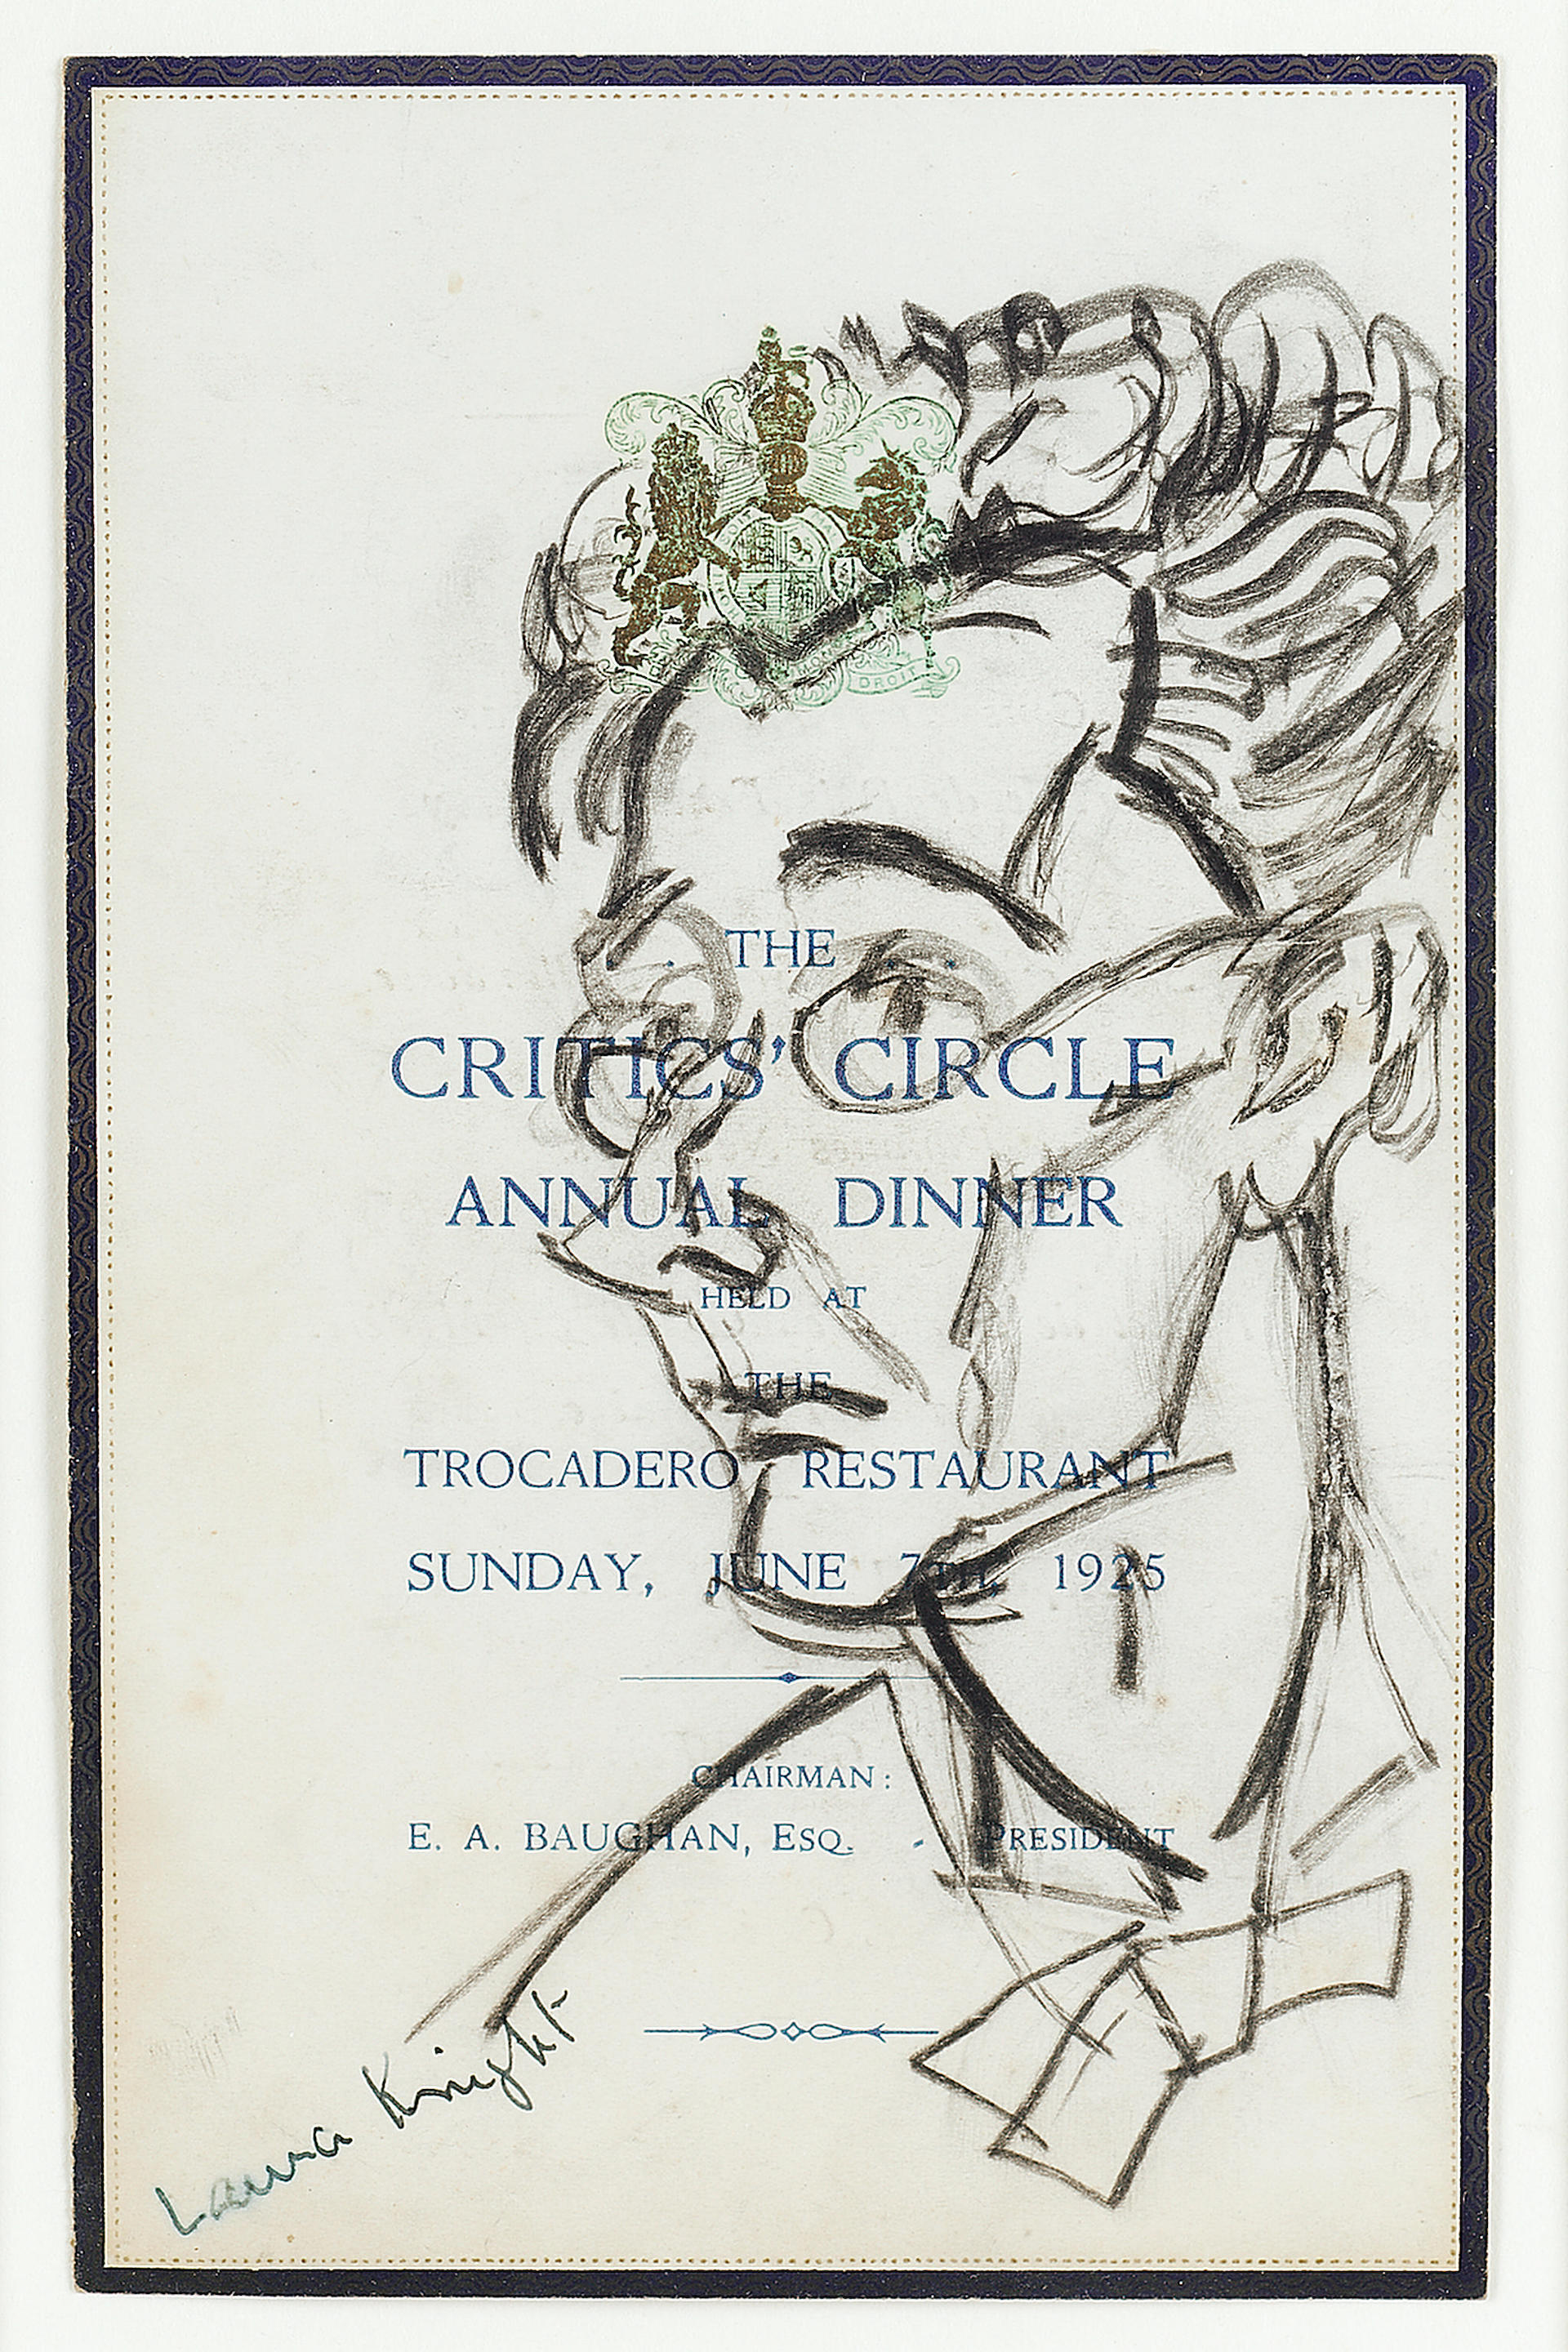 DROIT
THE
CRITICS' CIRCLE
ANNUAL DINNER
HELD AT
THE
TROCADERO RESTAURANT
SUNDAY, JUNE 7TH, 1925
CHAIRMAN:
E. A. BAUGHAN, ESQ. - PRESIDENT
Laura Knight